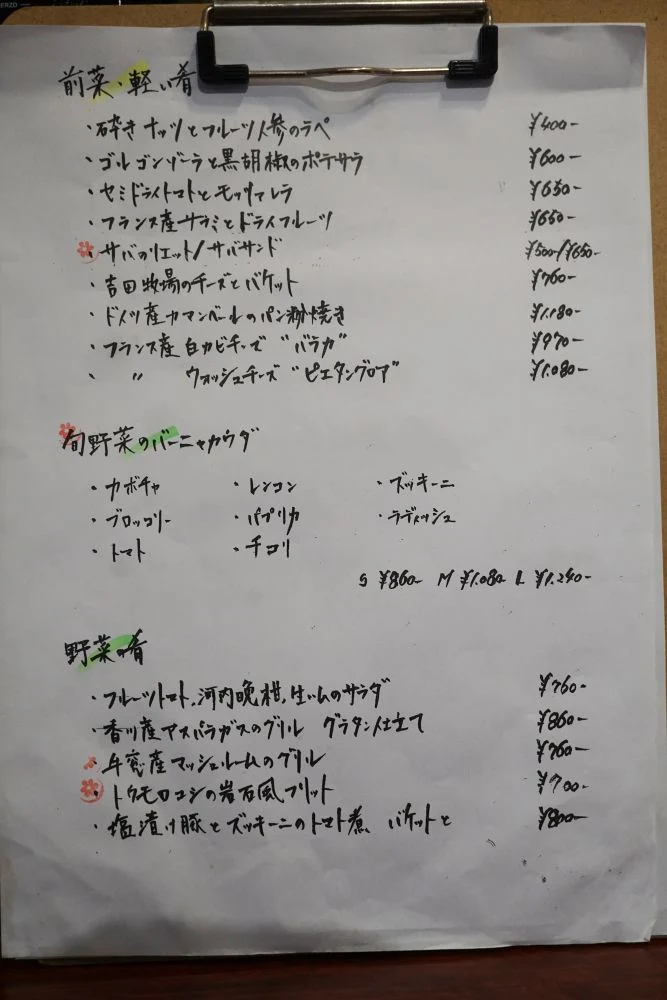 前菜・軽い肴
・砕きナッツとフルーツ人参のラペ ¥400-
・ゴルゴンゾーラと黒胡椒のポテサラ ¥600-
・セミドライトマトとモッツァレラ ¥650-
・フランス産サラミとドライフルーツ ¥650-
・サバのリエット/サバサンド ¥500-/¥650-
・吉田牧場のチーズとバケット ¥760-
・ドイツ産カマンベールのパン粉焼き ¥1.180-
・フランス産白カビチーズ "バラカ" ¥970-
・ 〃 ウォッシュチーズ "ピエダングロア" ¥1.080-
旬野菜のバーニャカウダ
・カボチャ ・レンコン ・ズッキーニ
・ブロッコリー ・パプリカ ・ラディッシュ
・トマト ・チコリ
S ¥860- M ¥1.080- L ¥1.240-
野菜の肴
・フルーツトマト、河内晩柑、生ハムのサラダ ¥760-
・香川産アスパラガスのグリル グラタン仕立て ¥860-
・牛窓産マッシュルームのグリル ¥760-
・トウモロコシの岩石風フリット ¥700-
・塩漬け豚とズッキーニのトマト煮 バケットと ¥800-